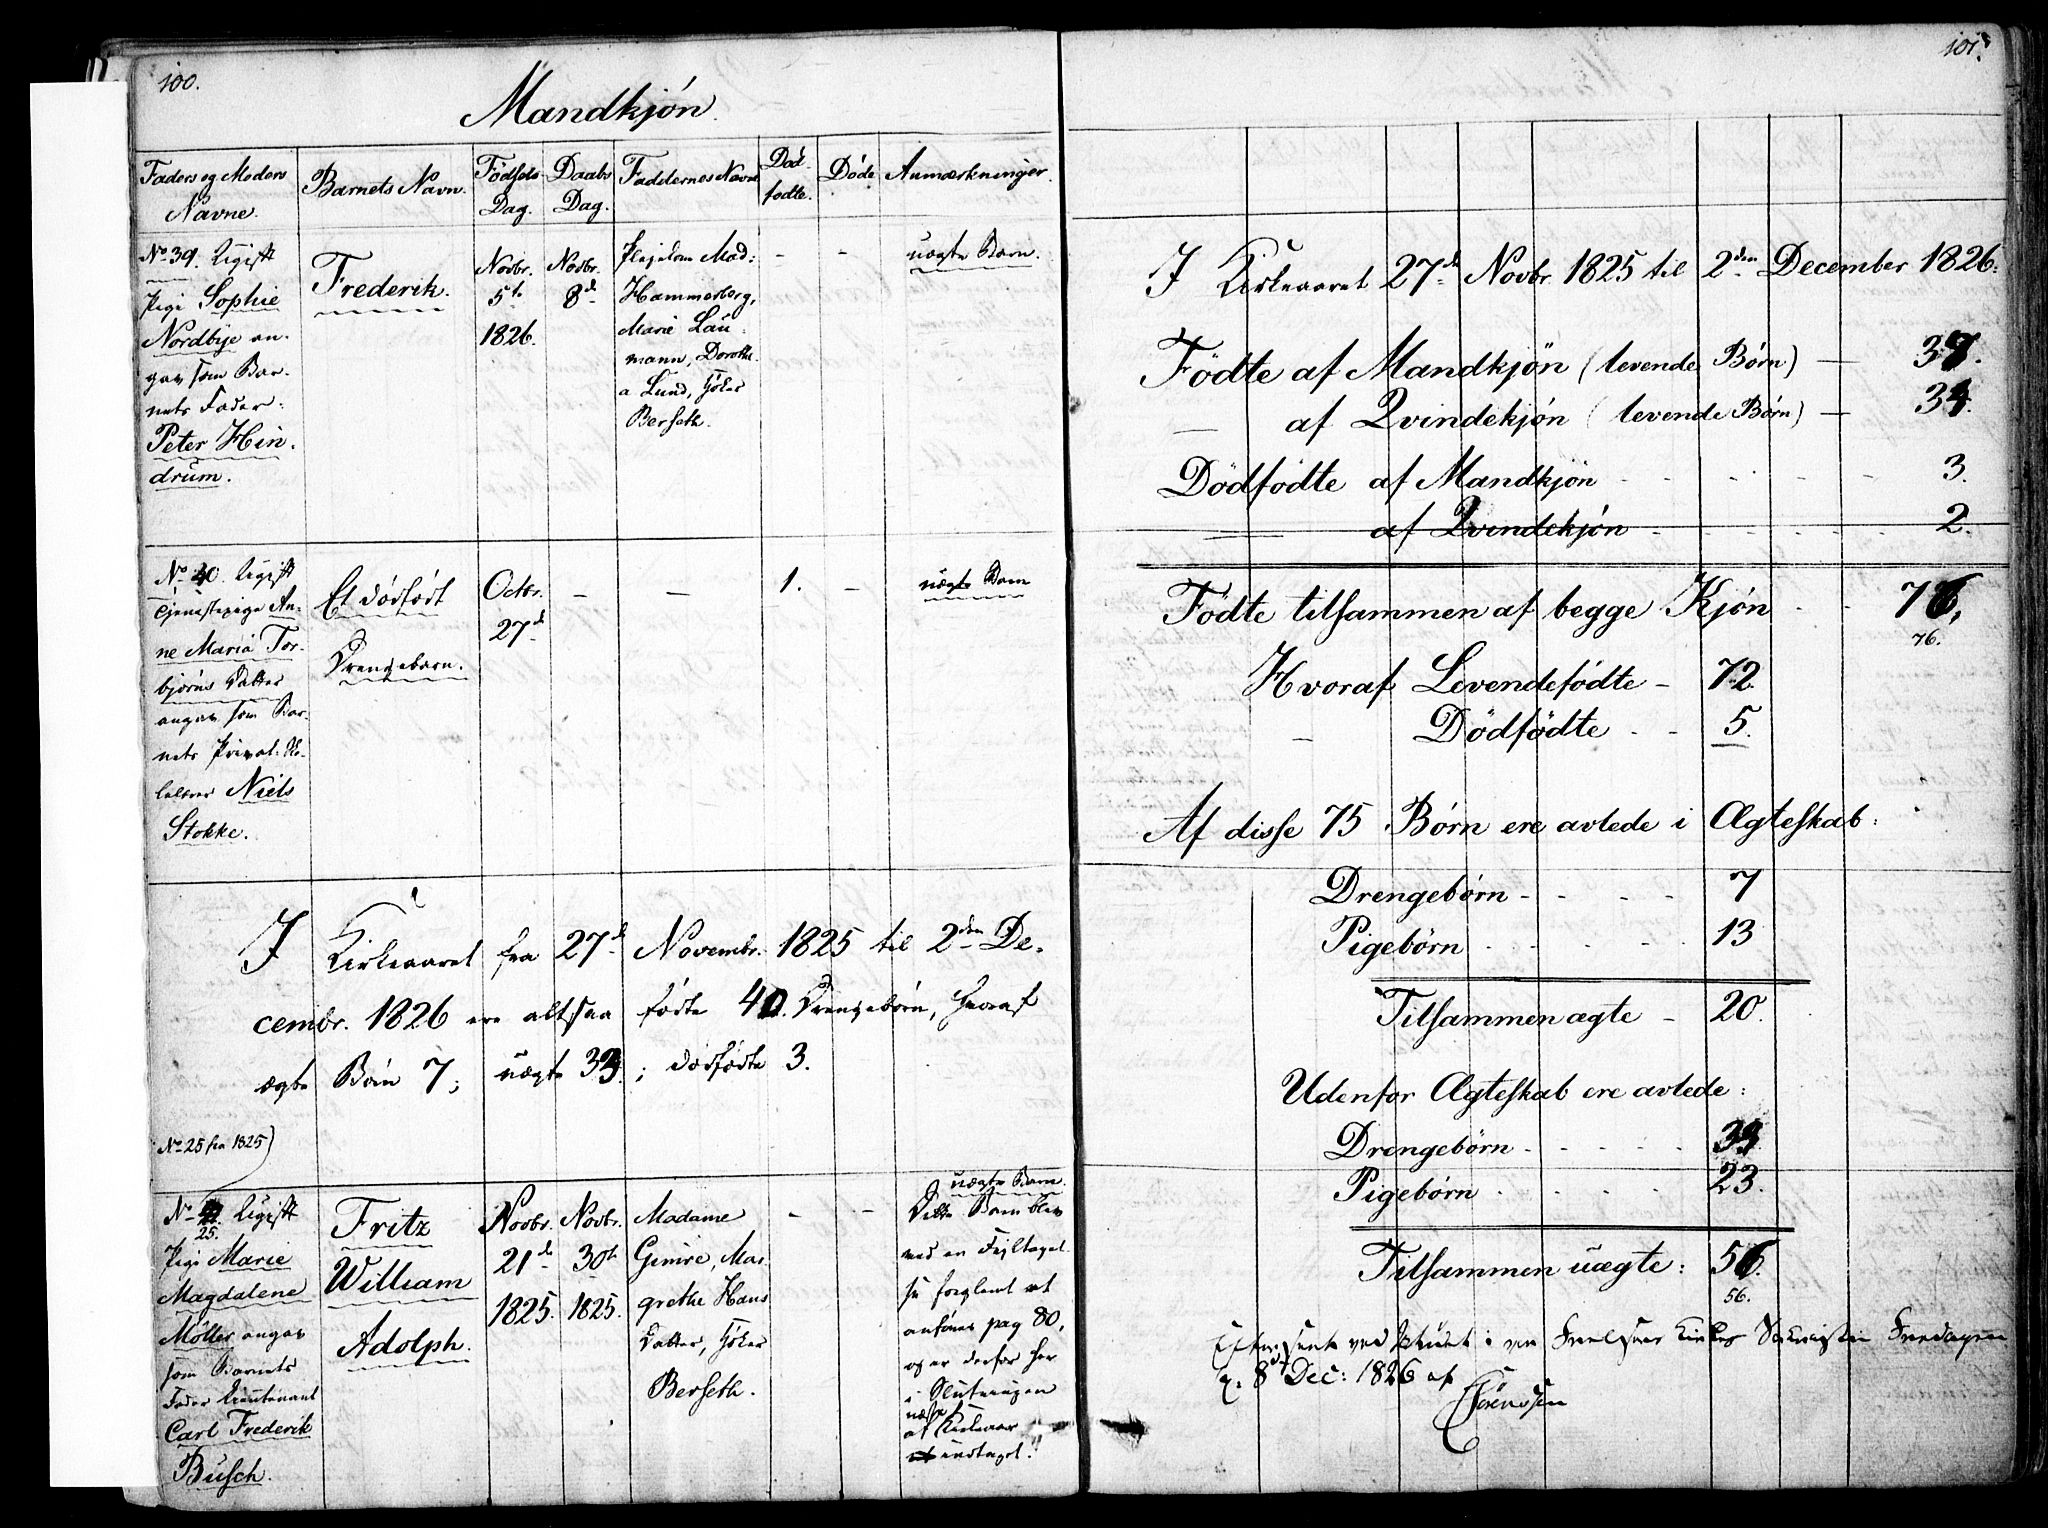 100.
Mandkjön.
Faders og Moders
Navne.
Barnets Navn.
Födsels
Dag.
Daabs
Dag.
Faddernes Navne
Död-
födte.
Döde
Anmærkninger.
No 39. Ugift
Pige Sophie
Nordbye an-
gav som Bar-
nets Fader:
Peter Hin-
drum.
Frederik.
Novbr.
5te
1826.
Novbr.
8de
Mad:
Hammerborg,
Marie Lau-
mann, Dorothe-
a Lund, Göker
Berseth.
- -
uægte Barn.
No 40. Ugift
Tjenestepige An-
ne Maria Tor-
björns Datter
angav som Bar-
nets Privat-Sko-
lelærer Niels
Stokke.
Et dödfödt
Drengebarn.
Octbr.
27de
- - 1. -
uægte Barn
I Kirkeaaret fra 27de Novembr. 1825 til 2den De-
cembr. 1826 ere altsaa födte 40. Drengebörn, hvoraf
ægte Börn 7; uægte 33.; dödfödte 3.
No 25 fra 1825)
No 25. Ugift
Pige Marie
Magdalene
Möller angav
som Barnets
Fader Lieutenant
Carl Frederik
Busch.
Fritz
William
Adolph.
Novbr.
21de
1825.
Novbr.
30te
1825.
Madame
Gimre, Mar
grethe Hans
Datter, Göker
Berseth.
- -
uægte Barn.
Dette Barn blev
ved en Fejltagel-
se forglemt at
anföres pag 80,
og er derfor her
i Slutningen
af næste Kirkeaar
indtaget.
101.
I Kirkeaaret 27de Novbr 1825 til 2den December 1826:
Födte af Mandkjön (levende Börn) — 37.
— af Qvindekjön (levende Börn) — 34.
Dödfödte af Mandkjön - - - 3.
— af Qvindekjön - - - 2.
Födte tilsammen af begge Kjön - - 76.
76.
Hvoraf Levendefödte - 72.
— Dödfödte - - 5.
Af disse 75 Börn ere avlede i Ægteskab:
Drengebörn - - - - 7
Pigebörn - - - - 13
Tilsammen ægte - 20.
Udenfor Ægteskab ere avlede:
Drengebörn - - - - 33.
Pigebörn - - - - 23.
Tilsammen uægte: 56.
56.
Efterseet ved i vor Frelsers Kirkes Sacristie Fredagen
d. 8de Dec: 1826 af
Sörenssen